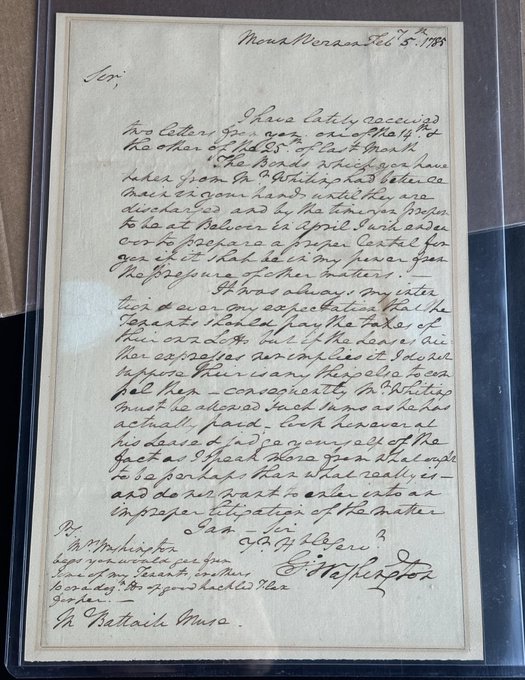 Mount Vernon Feby 5th 1785
Sir,
I have lately received
two letters from you one of the 14th &
the other of the 25th of last Month
The Bonds which you have
taken from Mr Whiting had better re
main in your hands until they are
discharged and by the time you propose
to be at Belvoir in April I will endea
vor to prepare a proper Rental for
you if it shall be in my power from
the pressure of other matters. —
It was always my inten
tion & ever my expectation that the
Tenants should pay the taxes of
their own Lotts but if the Leases nei
ther expresses nor implies it I do not
suppose their is any thing else to com
pel them — consequently Mr Whiting
must be allowed such sums as he has
actually paid — look however at
his Lease & judge yourself of the
fact as I speak more from what ought
to be perhaps than what really is —
and do not want to enter into an
improper litigation of the matter
I am — Sir
Yr Hble Servt
Go Washington
PS
Mrs Washington
begs you would get from
some of my Tenants, or others
10 or a dozn lbs of good hackled Flax
for her. —
Mr Battaile Muse.